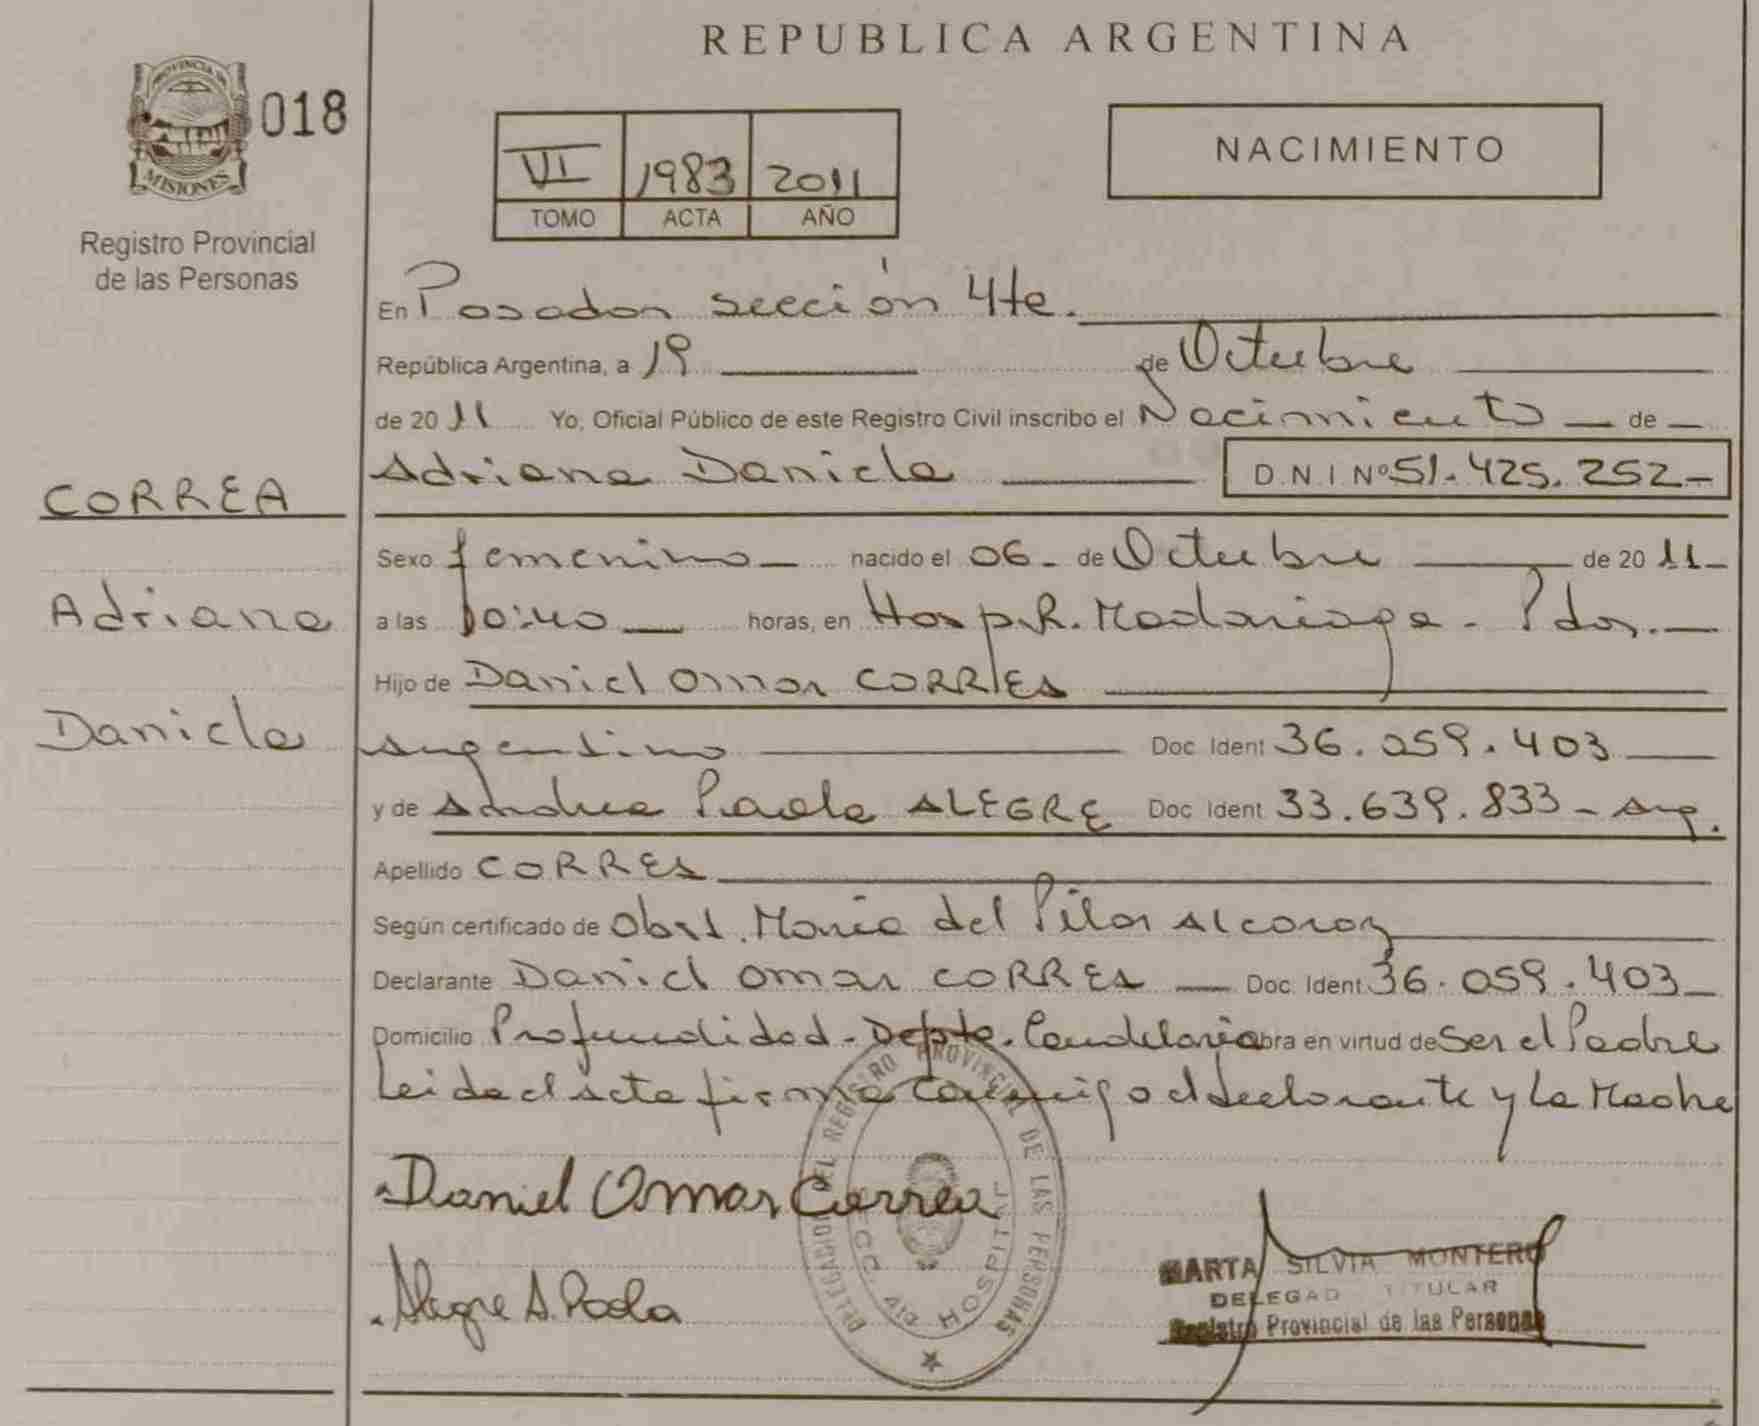 REPUBLICA ARGENTINA
PROVINCIA DE
MISIONES
018
Registro Provincial
de las Personas
VI 1983 2011
TOMO ACTA AÑO
NACIMIENTO
En Posadas sección 4ta.
República Argentina, a 19 de Octubre
de 2011 Yo, Oficial Público de este Registro Civil inscribo el Nacimiento de
Adriana Daniela D.N.I Nº 51.425.252-
CORREA
Adriana
Daniela
Sexo femenino nacido el 06 de Octubre de 2011
a las 10:40 horas, en Hosp. R. Madariaga - Pdas.
Hijo de Daniel Omar CORREA
argentino Doc Ident 36.059.403
y de Andrea Paola ALEGRE Doc Ident 33.639.833 - arg.
Apellido CORREA
Según certificado de Obst. María del Pilar Alcaraz
Declarante Daniel Omar CORREA Doc. Ident. 36.059.403
Domicilio Profundidad - Depto. Candelaria obra en virtud de Ser el Padre
Leida el acta firma conmigo el declarante y la Madre
Daniel Omar Correa
Alegre A. Paola
DELEGACION DEL REGISTRO PROVINCIAL DE LAS PERSONAS
SECC. 4ta HOSPITAL
MARTA SILVIA MONTERO
DELEGAD TITULAR
Registro Provincial de las Personas